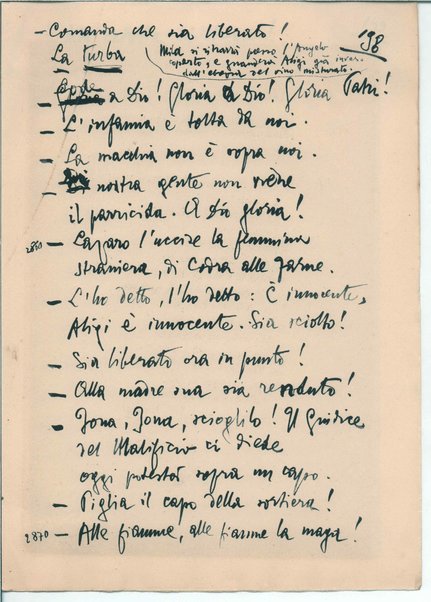 198
- Comanda che sia liberato!
La turba
Mila si rimarrà presso l'Angelo
coperto, e guarderà Aligi già inver.
dall'ebrezza del vino misturato.
- a Dio! Gloria a Dio! Gloria Patri!
- L'infamia è tolta da noi.
- La macchia non è sopra noi.
- Di nostra gente non viene
il parricida. A Dio gloria!
2860 - Lazaro l'uccise la femmina
straniera, di Codra alle farne.
- L'ho detto, l'ho detto: È innocente,
Aligi è innocente. Sia sciolto!
- Sia liberato ora in punto!
- Alla madre sua sia renduto!
- Jona, Jona, scioglilo! Il Giudice
del Malificio ci diede
oggi potestà sopra un capo.
- Piglia il capo della sortiera!
2870 - Alle fiamme, alle fiamme la maga!